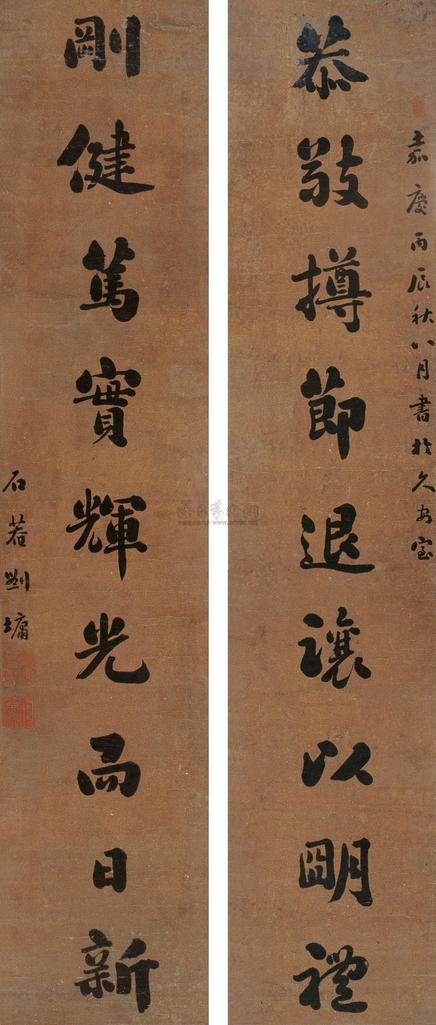 嘉慶丙辰秋八月書於久安室
恭敬撙節退讓以明禮
剛健篤實輝光而日新
石菴劉墉